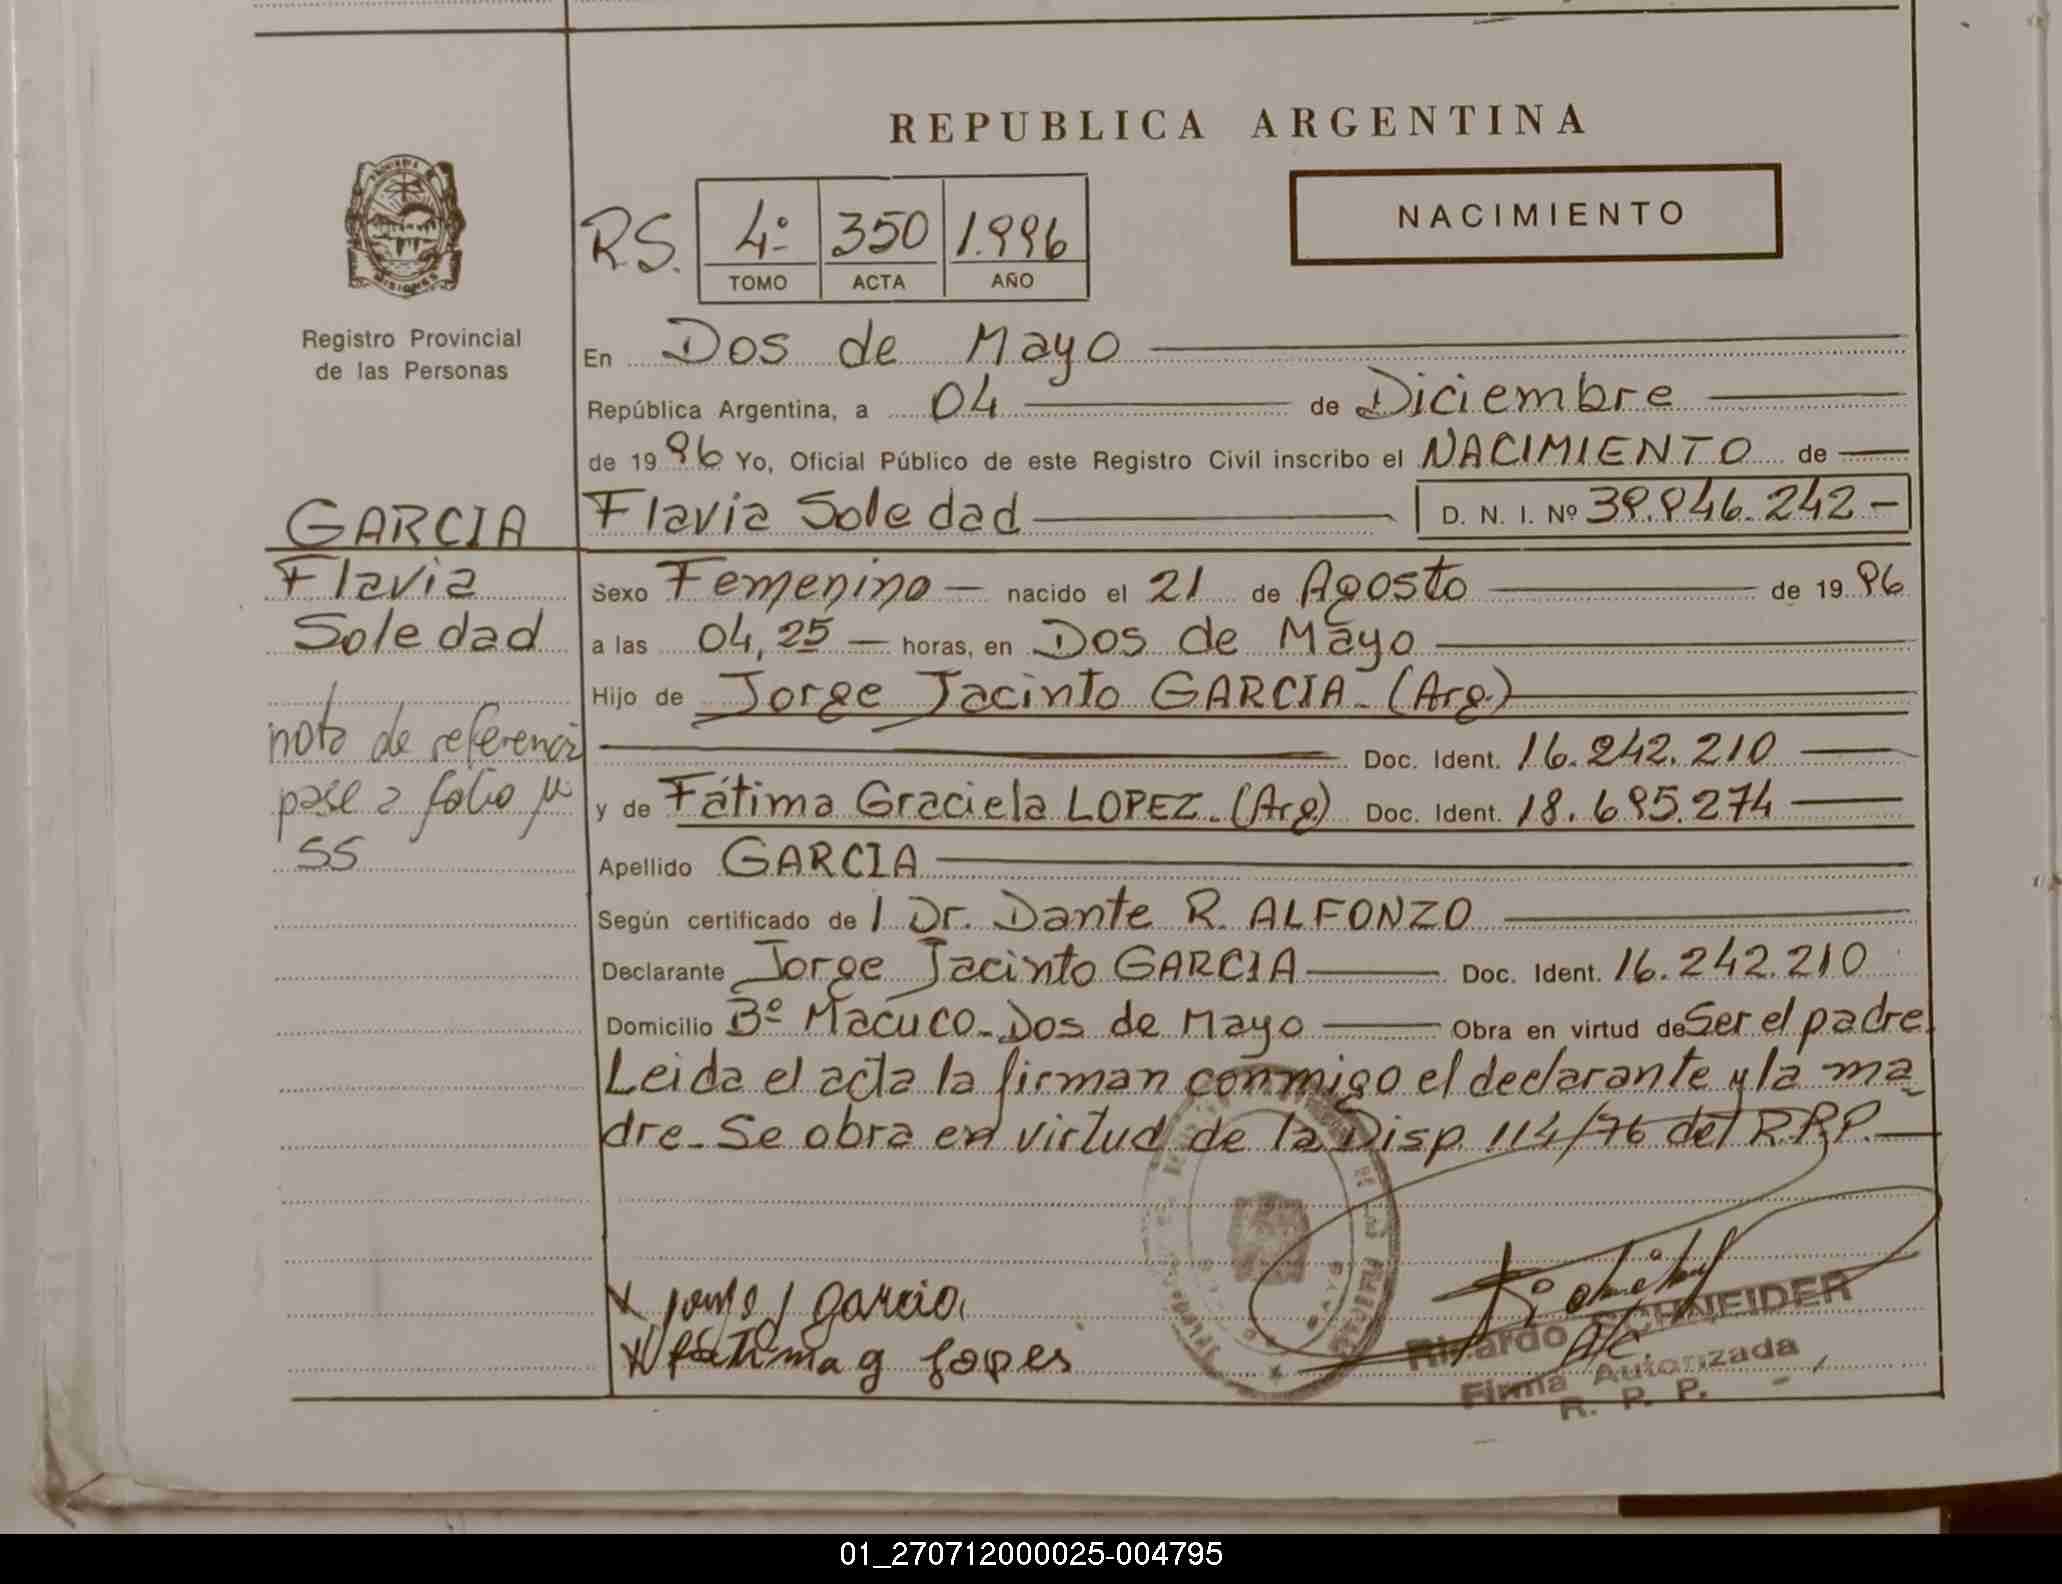 REPUBLICA ARGENTINA
NACIMIENTO
R.S. 4º 350 1.996
TOMO ACTA AÑO
MISIONES
Registro Provincial
de las Personas
En Dos de Mayo
República Argentina, a 04 de Diciembre
de 1996 Yo, Oficial Público de este Registro Civil inscribo el NACIMIENTO de
GARCIA
Flavia Soledad D. N. I. Nº 39.946.242-
Flavia
Soledad
Sexo Femenino - nacido el 21 de Agosto de 1996
a las 04,25 - horas, en Dos de Mayo
Hijo de Jorge Jacinto GARCIA - (Arg.)
Doc. Ident. 16.242.210
nota de referencia
pase a folio
55
y de Fátima Graciela LOPEZ - (Arg) Doc. Ident. 18.695.274
Apellido GARCIA
Según certificado de l Dr. Dante R. ALFONZO
Declarante Jorge Jacinto GARCIA Doc. Ident. 16.242.210
Domicilio Bº Macuco - Dos de Mayo Obra en virtud de Ser el padre.
Leida el acta la firman conmigo el declarante y la ma-
dre - Se obra en virtud de la Disp. 114/76 del R.P.P.
x Jorge J Garcia
x fatima g Lopes
Ricardo SCHNEIDER
A/C.
Firma Autorizada
R. P. P.
01_270712000025-004795